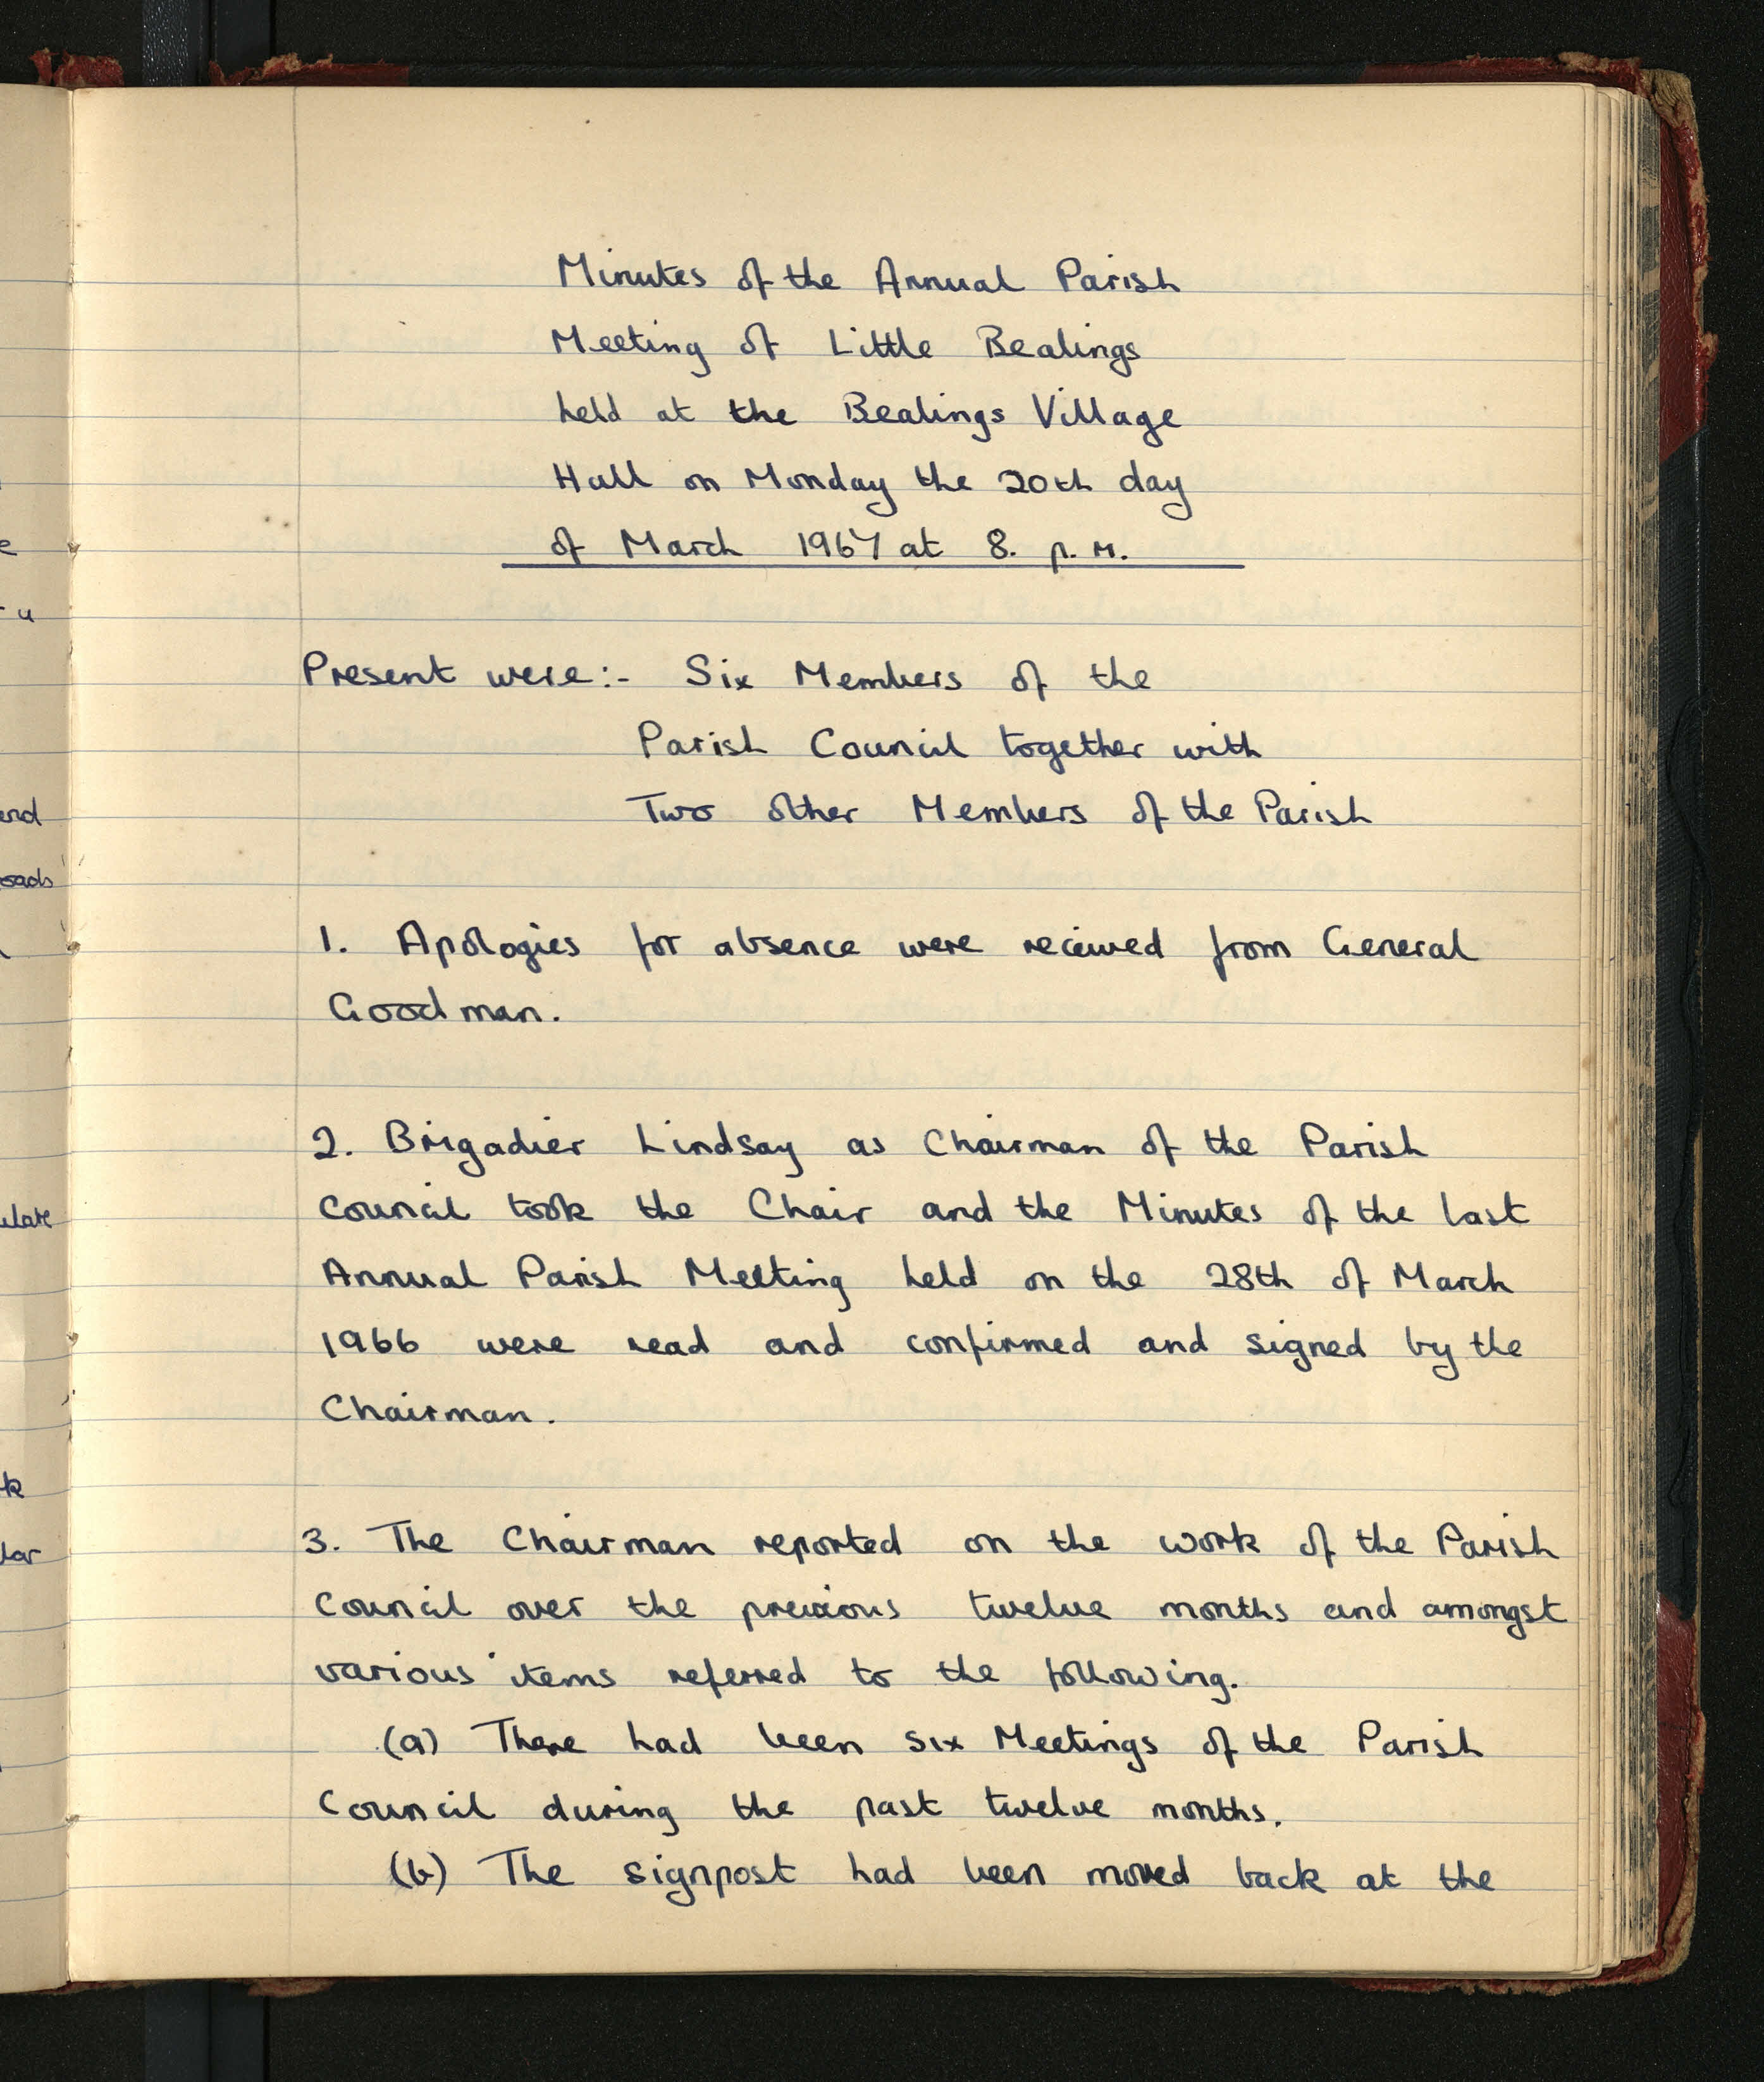 e
u
end
oads
ulate
k
lar
Minutes of the Annual Parish
Meeting of Little Bealings
held at the Bealings Village
Hall on Monday the 20th day
of March 1967 at 8. p.m.
Present were:- Six Members of the
Parish Council together with
Two other Members of the Parish
1. Apologies for absence were received from General
Goodman.
2. Brigadier Lindsay as Chairman of the Parish
Council took the Chair and the Minutes of the last
Annual Parish Meeting held on the 28th of March
1966 were read and confirmed and signed by the
Chairman.
3. The Chairman reported on the work of the Parish
Council over the previous twelve months and amongst
various items referred to the following.
(a) There had been six Meetings of the Parish
Council during the past twelve months.
(b) The signpost had been moved back at the